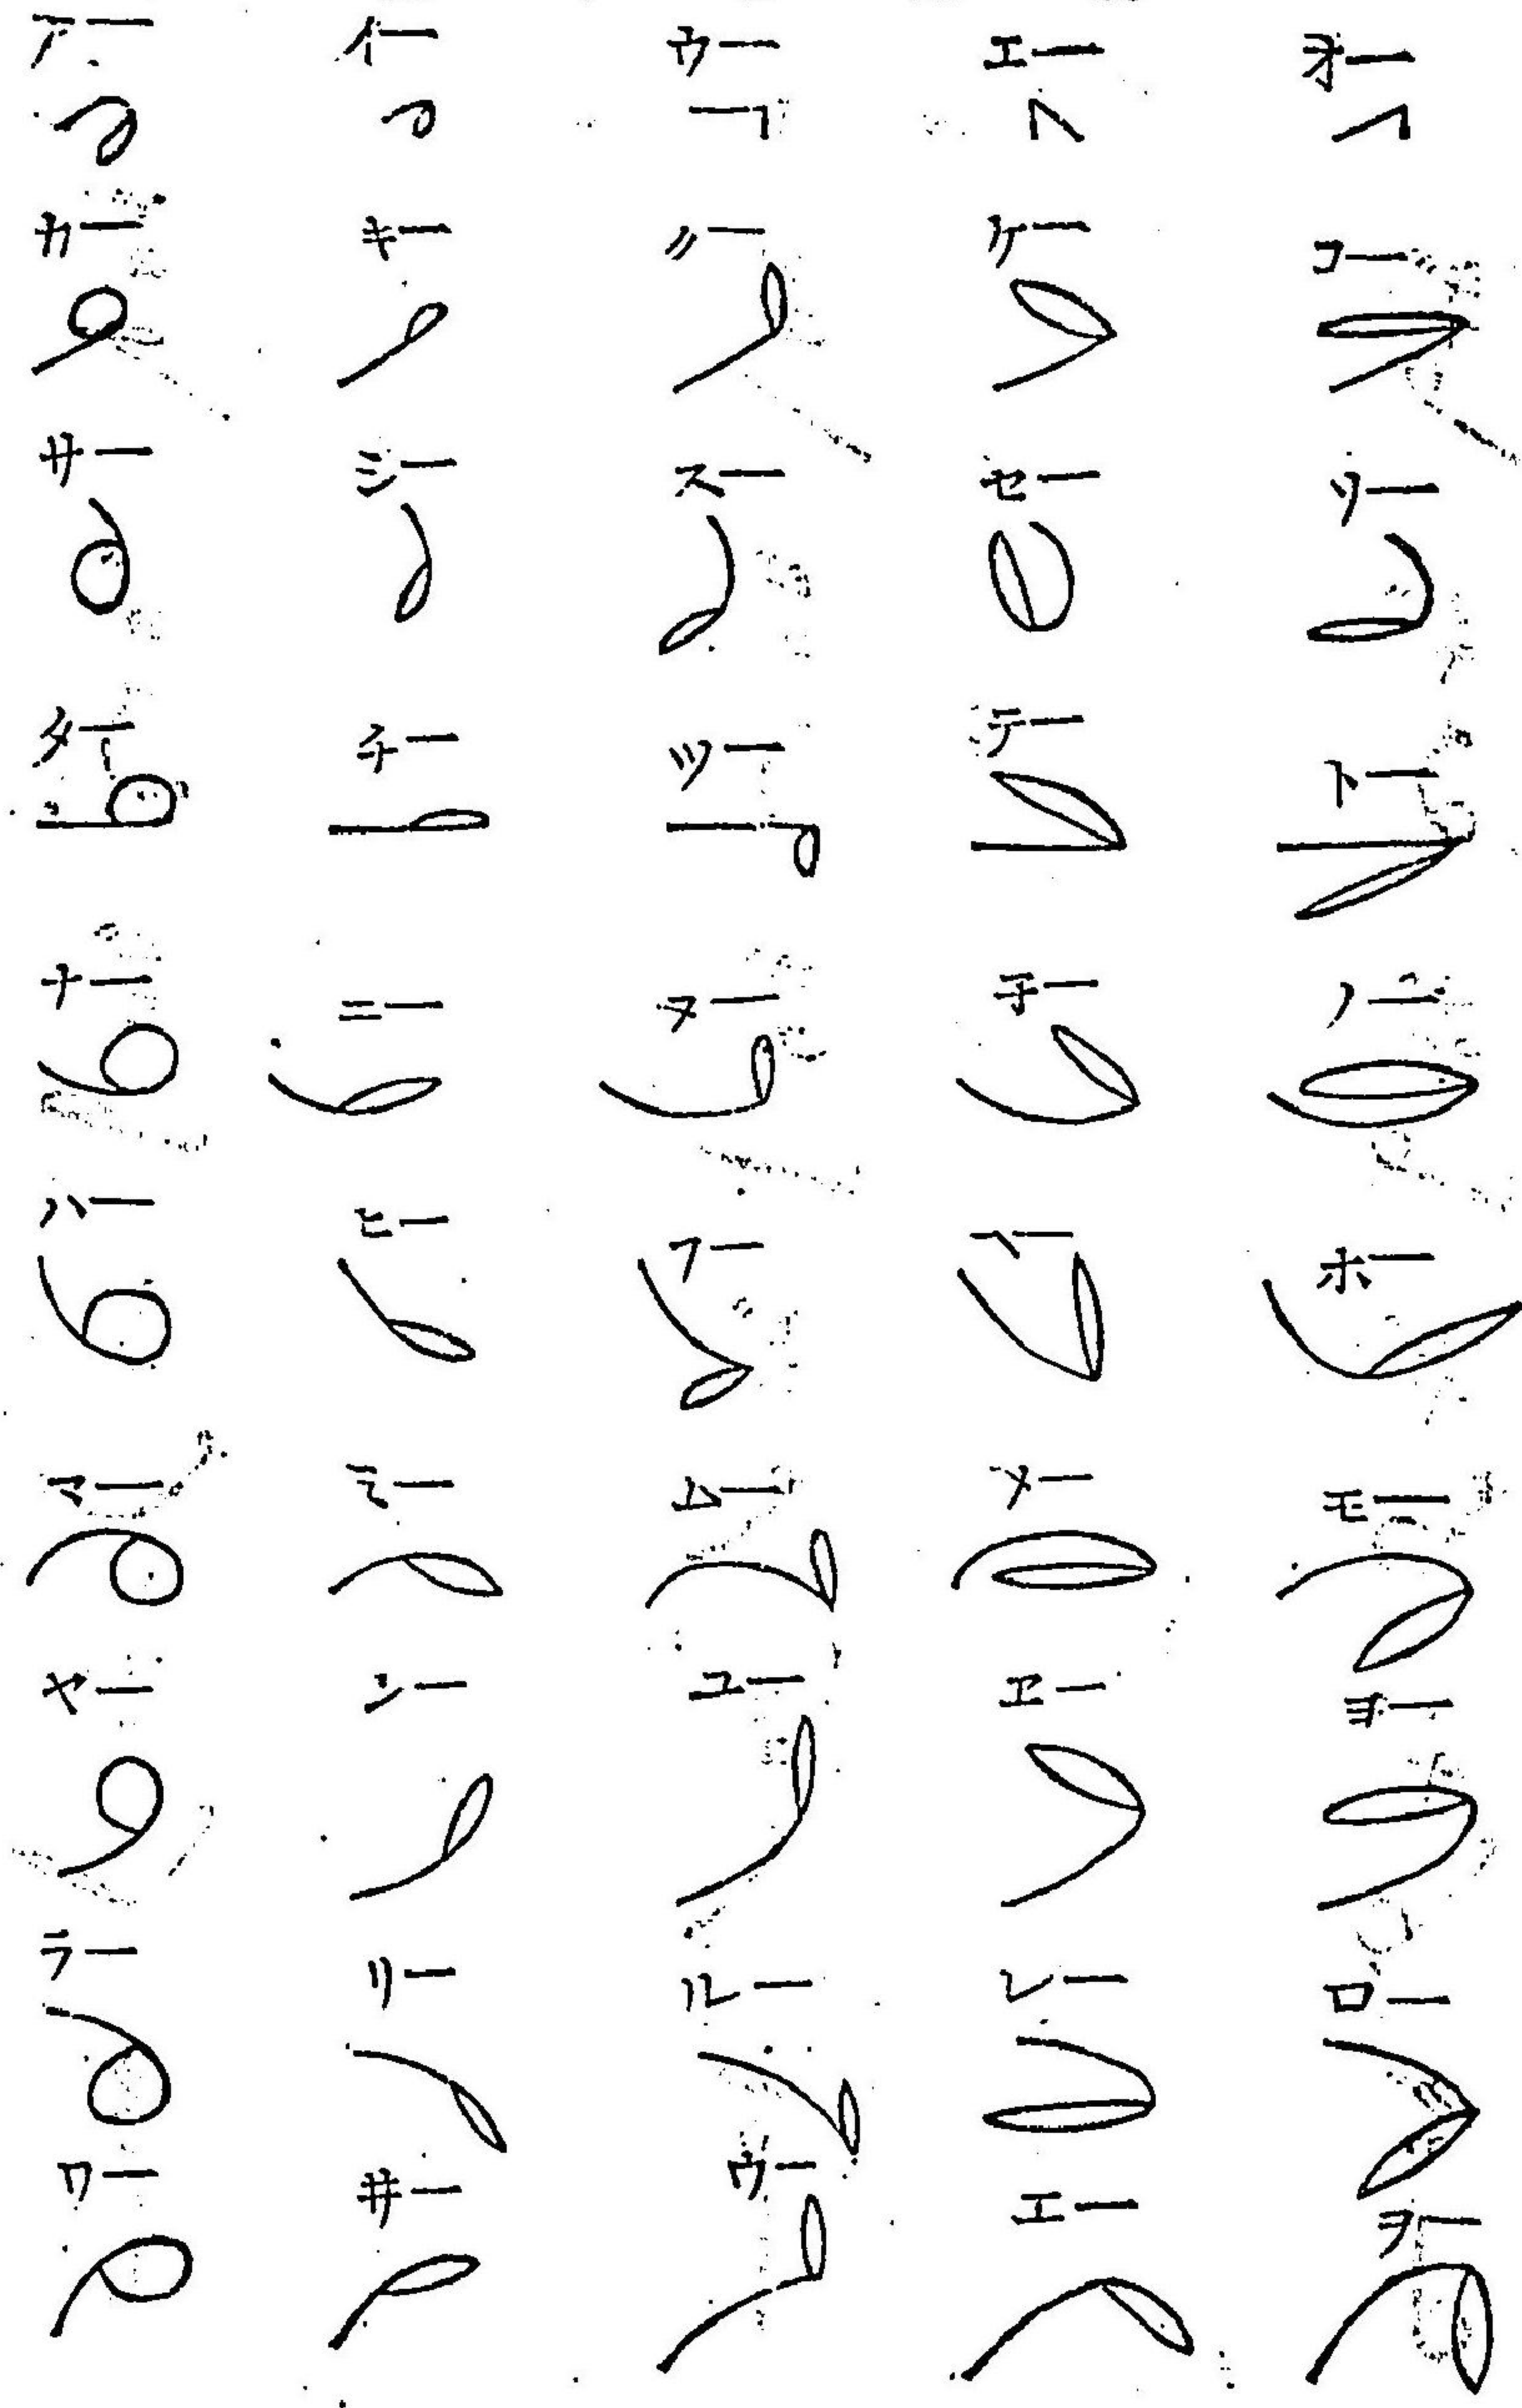 アー イー ウー エー オー
カー キー クー ケー コー
サー シー スー セー ソー
ター チー ツー テー トー
ナー ニー ヌー 子ー ノー
ハー ヒー フー ヘー ホー
マー ミー ムー メー モー
ヤー ンー ユー ヱー ヨー
ラー リー ルー レー ロー
ワー 井ー ウー エー ヲー